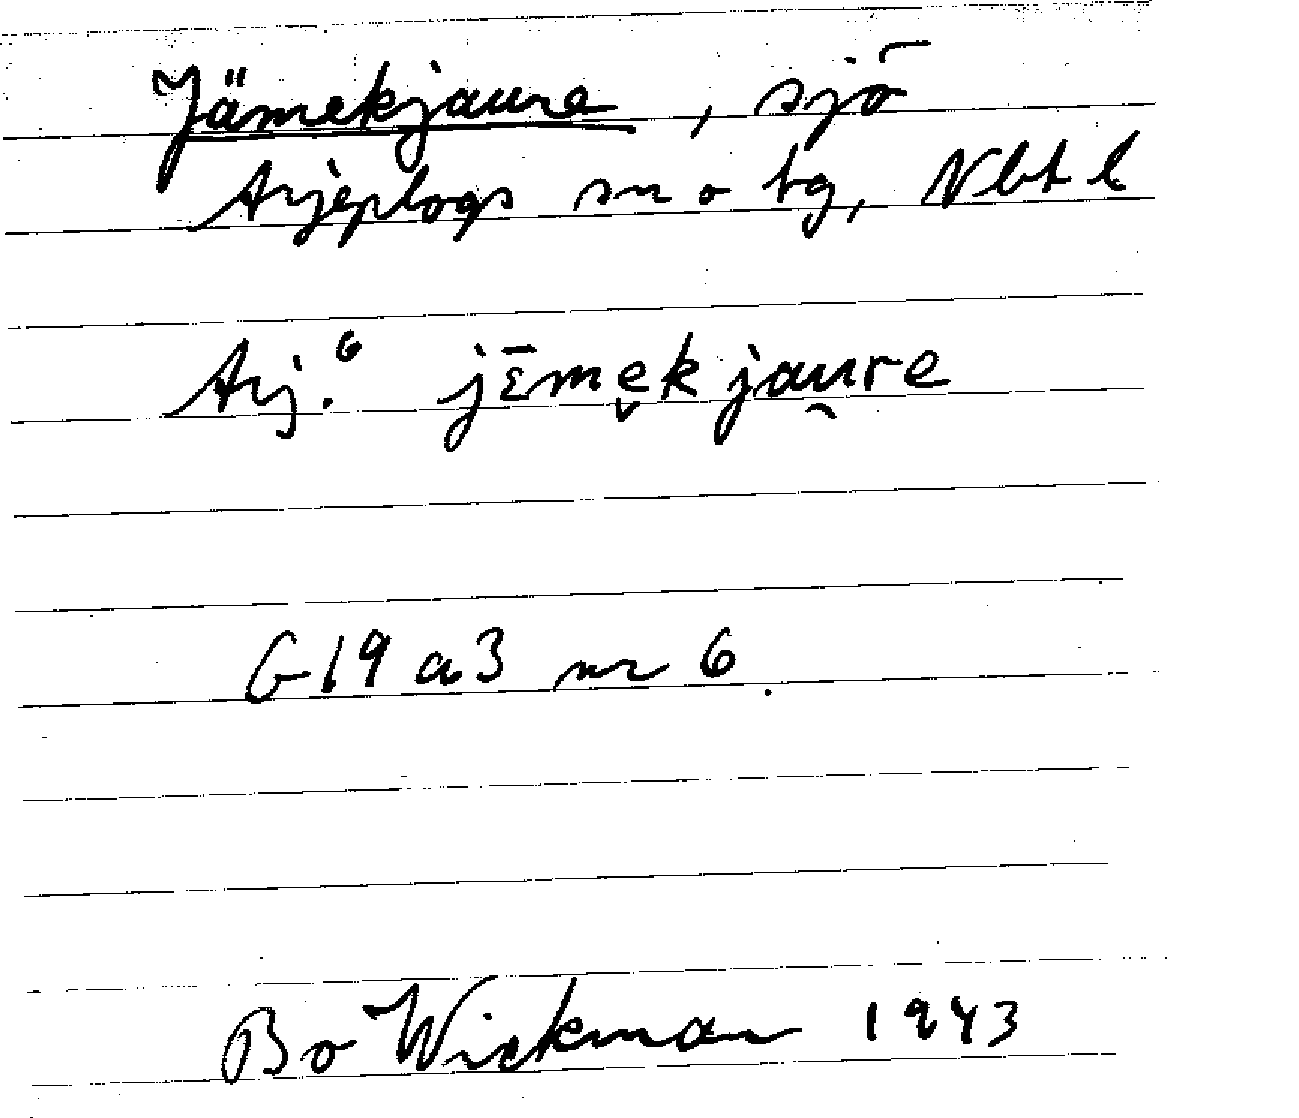 Jämekjaure, sjö
Arjeplogs sn o tg, Nbt l
Arj.⁶ jɛ̄me̬kjau̯re
G 19 a 3 nr 6.
Bo Wickman 1943